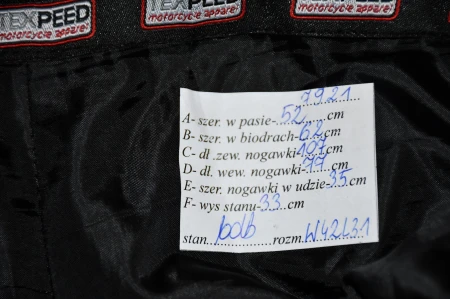 TEXPEED TEXPEED TEXPEED
motorcycle apparel motorcycle apparel motorcycle apparel
7921
A- szer. w pasie-52 cm
B- szer. w biodrach-62cm
C- dł .zew. nogawki-107cm
D- dł. wew. nogawki-77cm
E- szer. nogawki w udzie-35cm
F- wys stanu-33 cm
stan bdb rozm W42L31